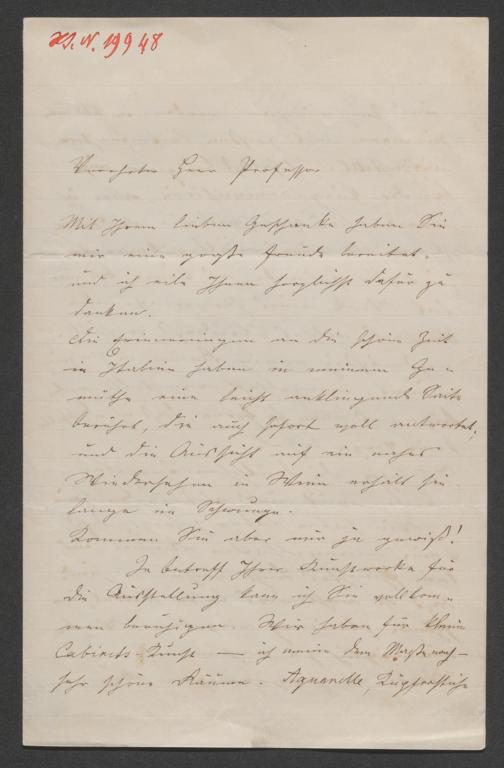 H.I.N. 19948
Verehrter Herr Professor
Mit Ihrem lieben Geschenke haben Sie
mir eine große Freude bereitet,
und ich eile Ihnen herzlichst dafür zu
danken.
Die Erinnerungen an die schöne Zeit
in Italien haben in meinem Ge-
müthe eine leicht anklingende Saite
berührt, die auch sofort voll antwortet,
und die Aussicht auf ein nahes
Wiedersehen in Wien erhält sie
lange im Schwunge.
Kommen Sie aber nur ja gewiß!
In betreff Ihrer Kunstwerke für
die Ausstellung kann ich Sie vollkom-
men beruhigen. Wir haben für kleine
Cabinets-Kunst — ich meine dem Maße nach —
sehr schöne Räume. Aquarelle, Kupferstiche